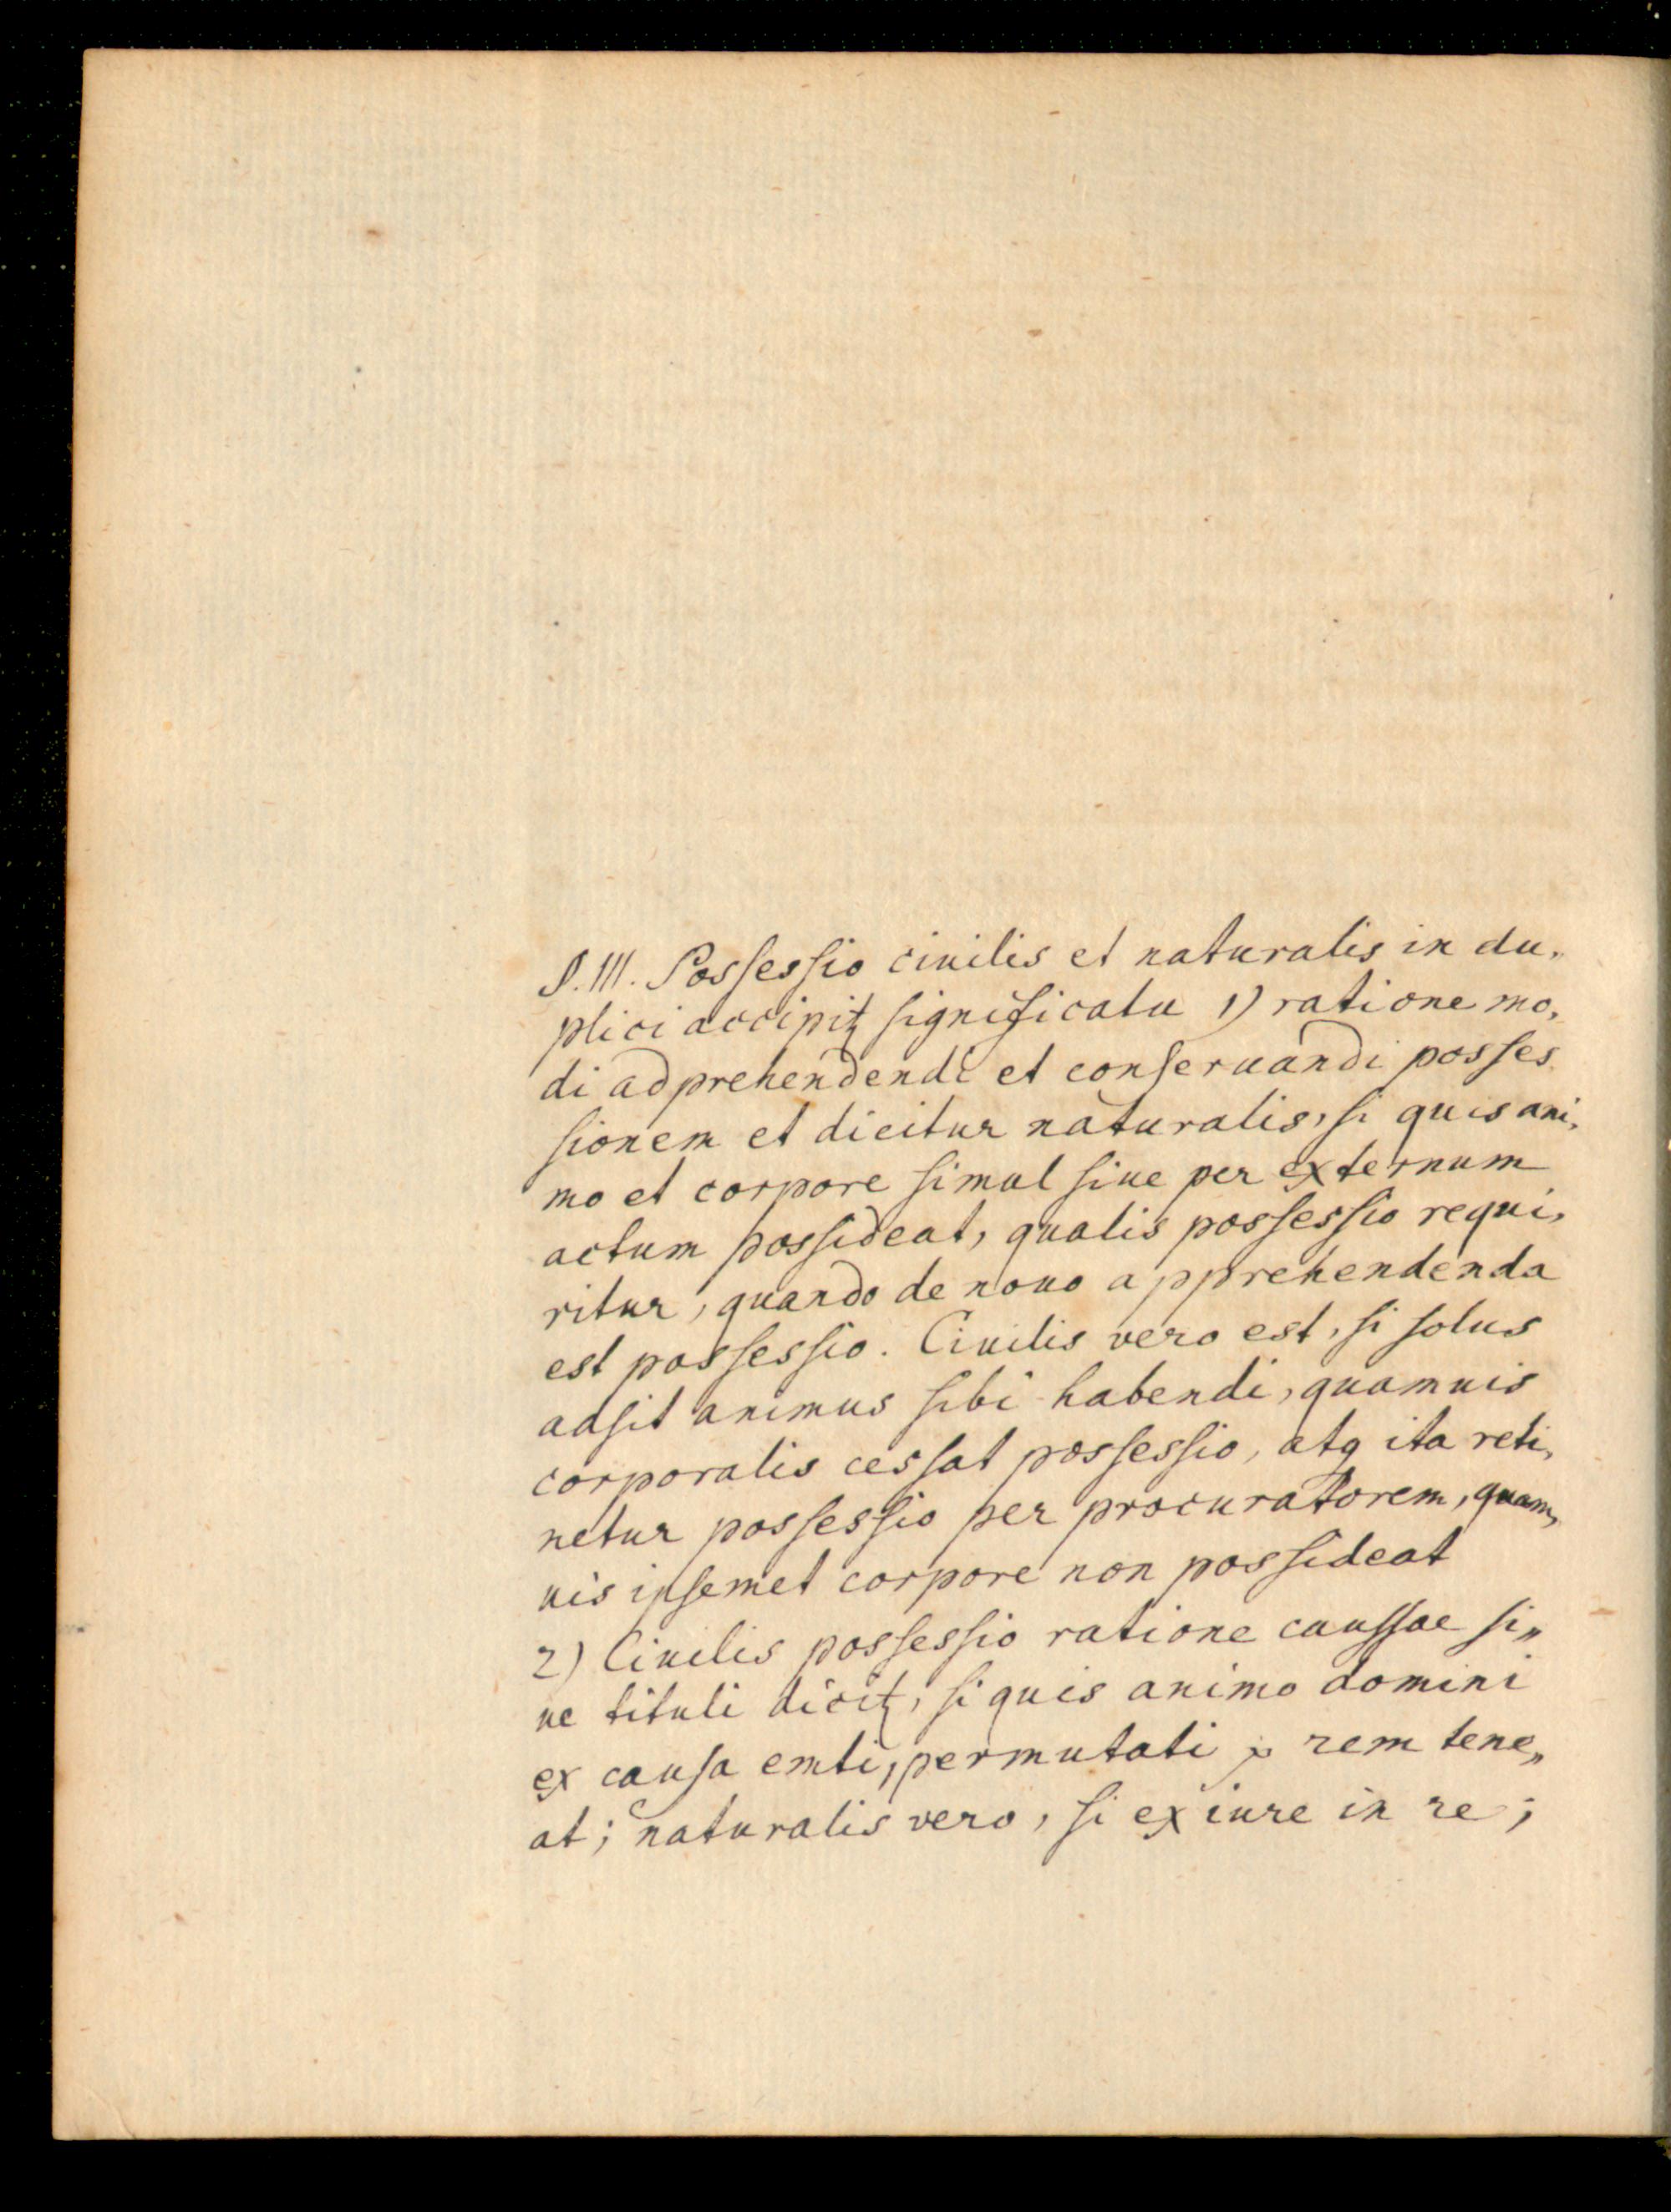 §. III. Possessio ciuilis et naturalis in du,
plici accipitꝫ significatu 1) ratione mo,
di adprehendendi et conseruandi posses
sionem et dicitur naturalis, si quis ani,
mo et corpore simul siue per externum
actum possideat, qualis possessio requi,
ritur, quando de nouo apprehendenda
est possessio. Ciuilis vero est, si solus
adsit animus sibi habendi, quamuis
corporalis cessat possessio, atq ita reti,
netur possessio per procuratorem, quam,
uis ipsemet corpore non possideat
2) Ciuilis possessio ratione caussae si„
ue tituli dicitꝫ, si quis animo domini
ex causa emti, permutati rem tene„
at; naturalis vero, si ex iure in re;